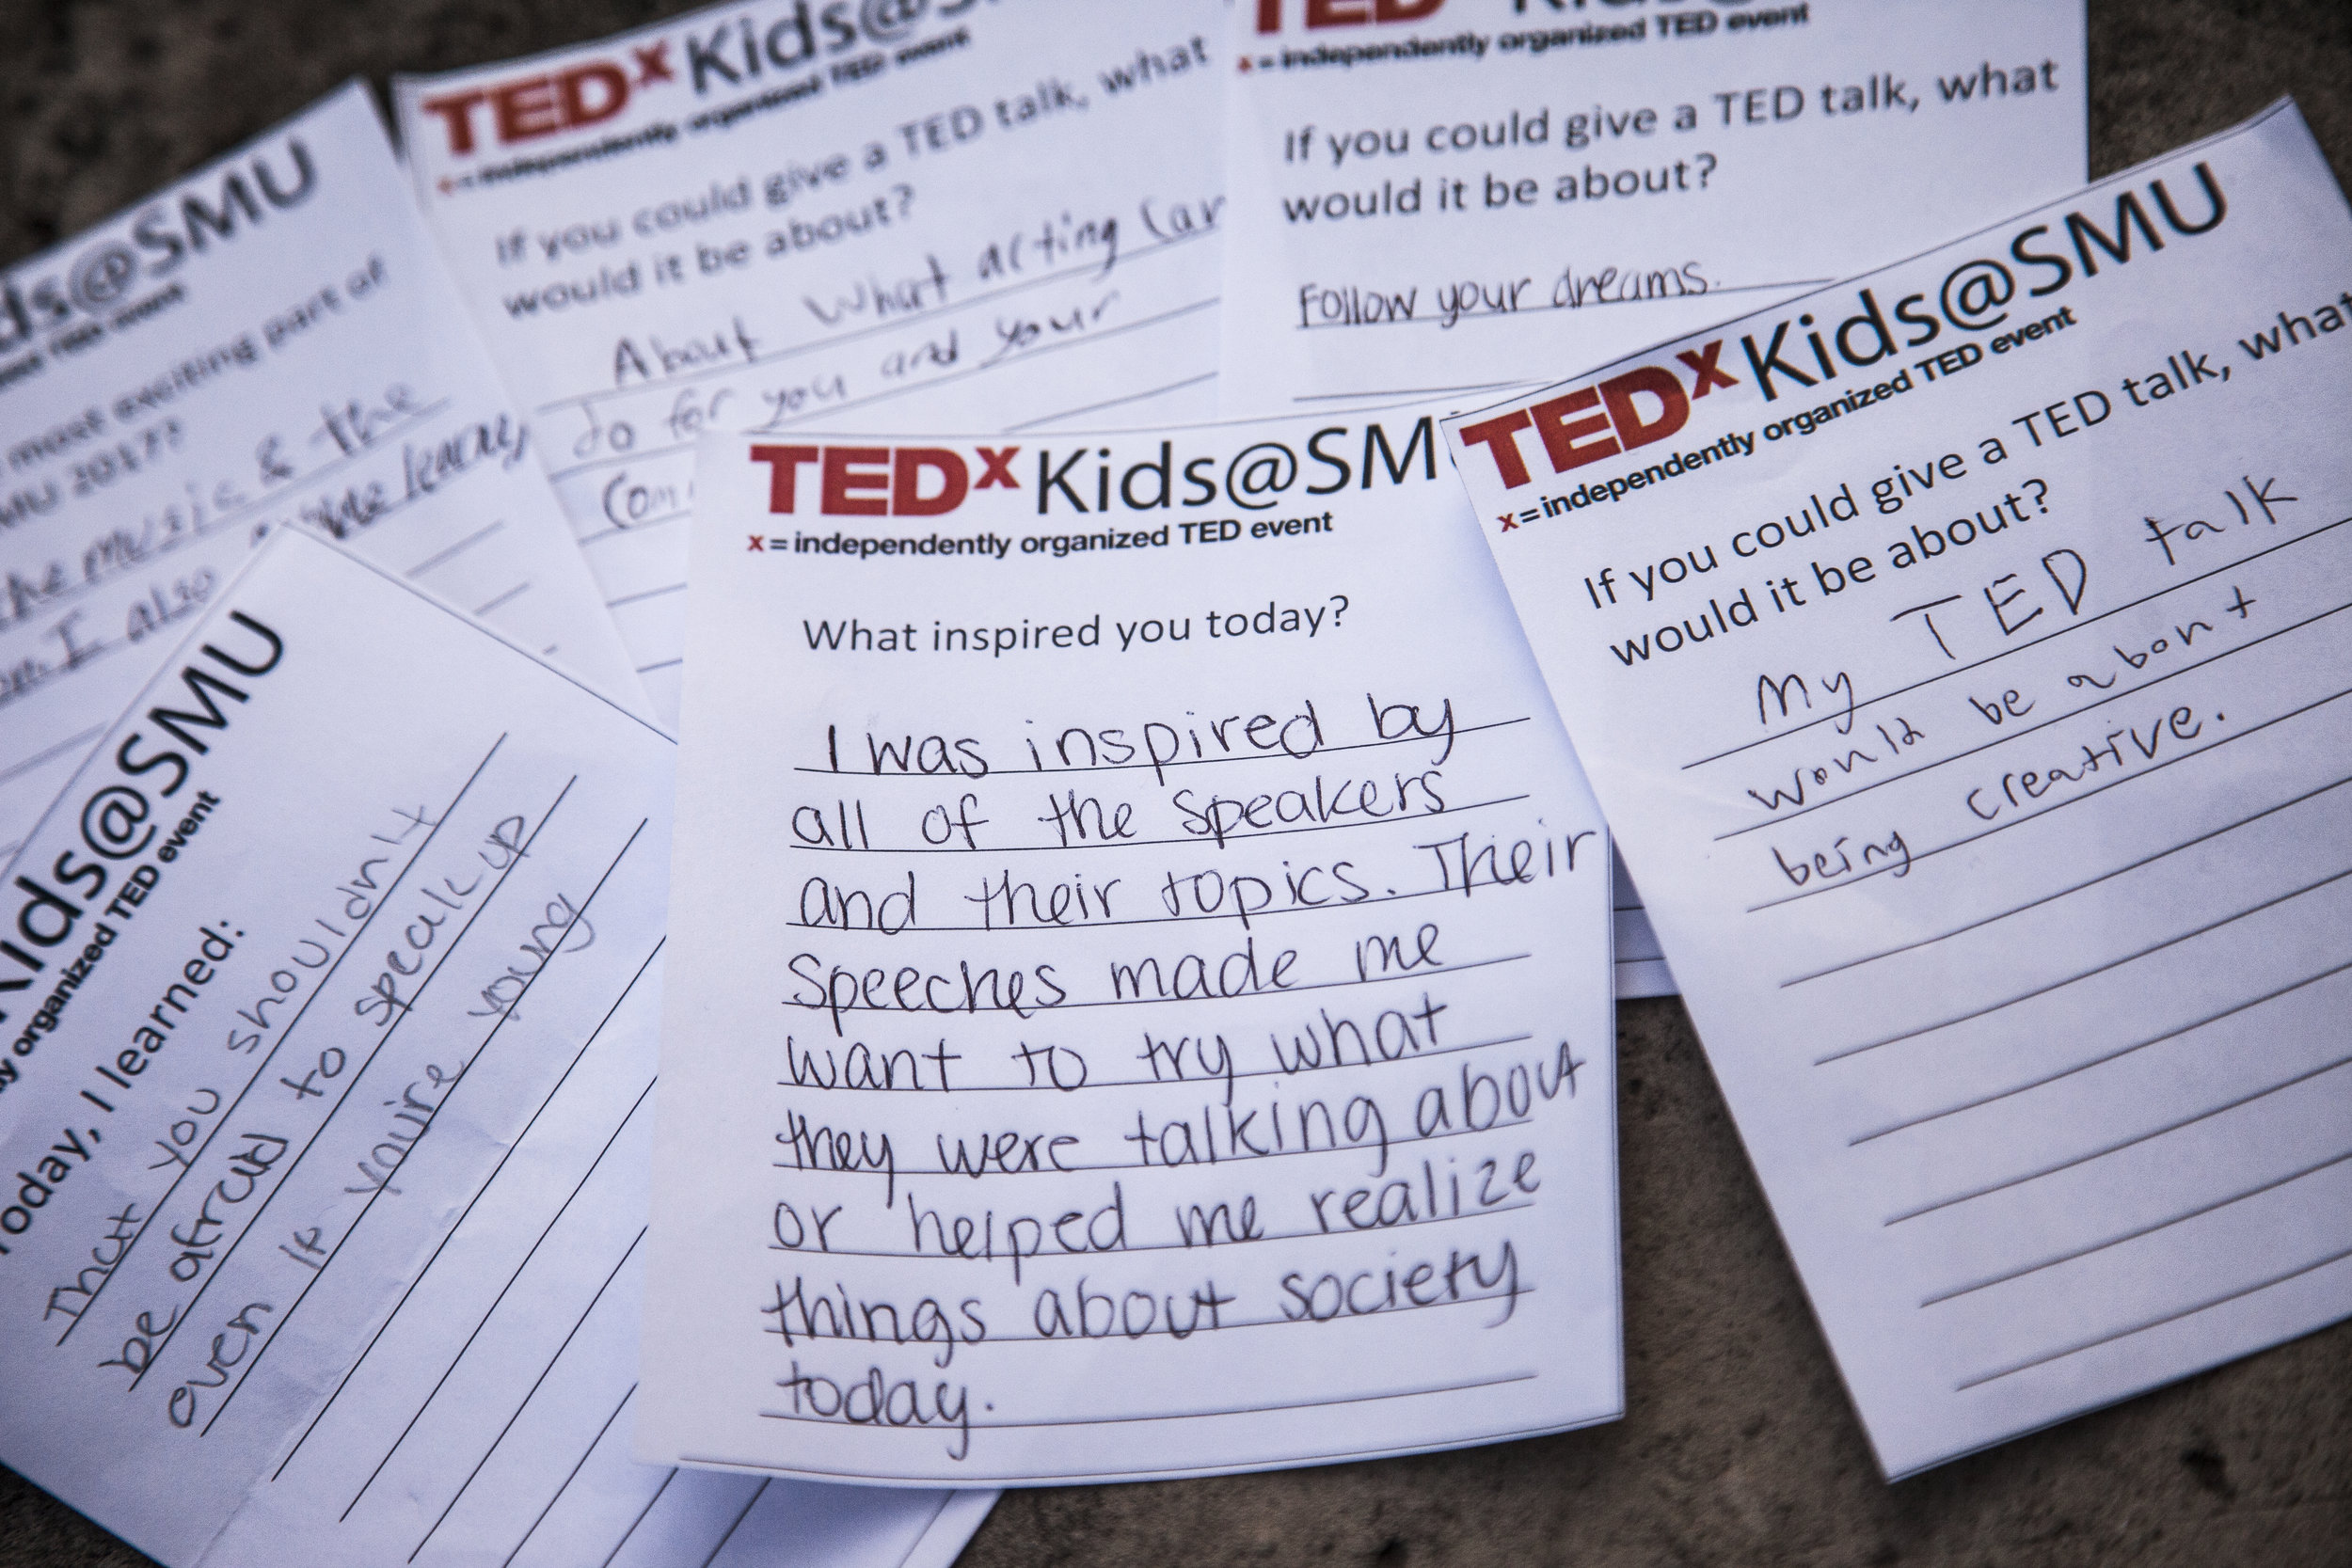 ds@SMU
most exciting part of
MU 2017?
the music & the
I also
TEDxKids@S
x = independently organized TED event
If you could give a TED talk, what
would it be about?
About what acting can
do for you and your
Com
TEDxKids@
x = independently organized TED event
If you could give a TED talk, what
would it be about?
Follow your dreams.
TEDxKids@SMU
x = independently organized TED event
If you could give a TED talk, what
would it be about?
My TED talk
would be about
being creative.
Kids@SMU
organized TED event
Today, I learned:
That you shouldn't
be afraid to speak up
even if you're young
TEDxKids@SM
x = independently organized TED event
What inspired you today?
I was inspired by
all of the speakers
and their topics. Their
speeches made me
want to try what
they were talking about
or helped me realize
things about society
today.